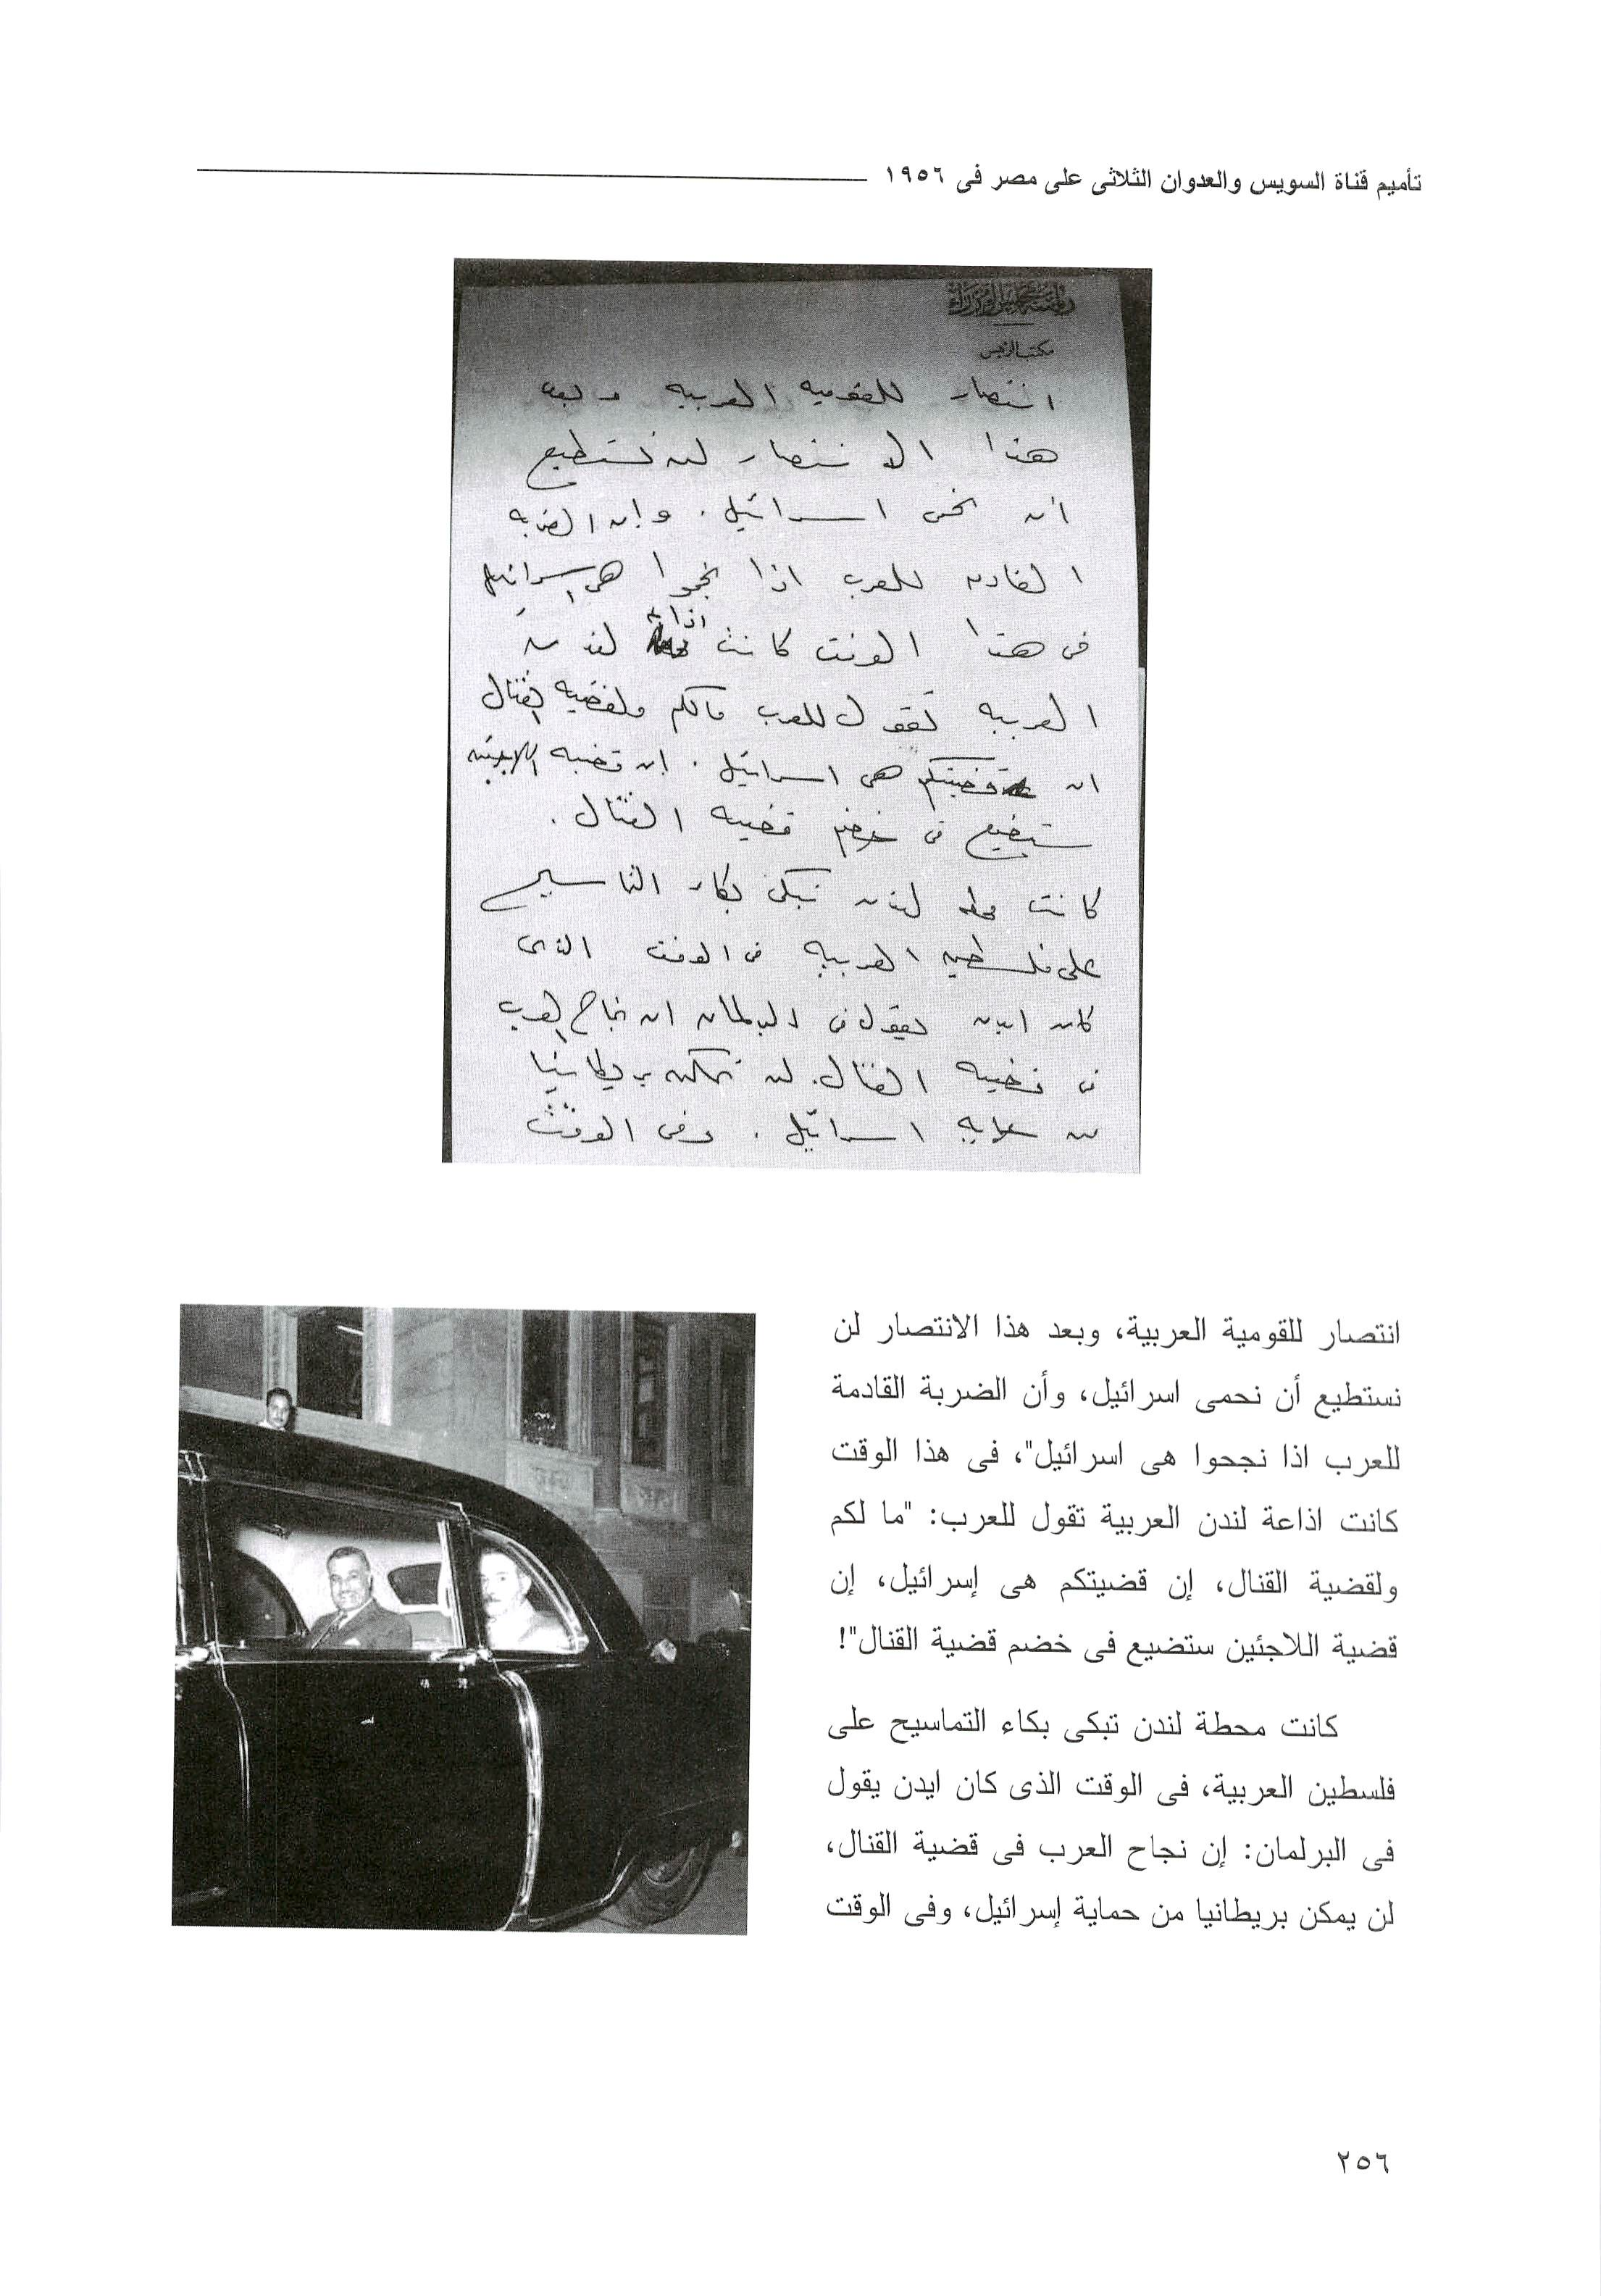 تأميم قناة السويس والعدوان الثلاثى على مصر فى ١٩٥٦
رئاسة مجلس الوزراء
مكتب الرئيس
انتصار للقوميه العربيه وبعد
هذا الانتصار لن نستطيع
أن نحمى اسرائيل. وإن الضربه
القادمه للعرب اذا نجحوا هى اسرائيل
فى هذا الوقت كانت اذاعة لندن
العربيه تقول للعرب مالكم ولقضيه القنال
ان قضيتكم هى اسرائيل. إن قضيه اللاجئين
ستضيع فى خضم قضيه القنال.
كانت محطه لندن تبكى بكاء التماسيح
على فلسطين العربيه فى الوقت الذى
كان ايدن يقول فى البرلمان ان نجاح العرب
فى قضيه القنال. لن تمكن بريطانيا
من حمايه اسرائيل. وفى الوقت
انتصار للقومية العربية، وبعد هذا الانتصار لن
نستطيع أن نحمى اسرائيل، وأن الضربة القادمة
للعرب اذا نجحوا هى اسرائيل"، فى هذا الوقت
كانت اذاعة لندن العربية تقول للعرب: "ما لكم
ولقضية القنال، إن قضيتكم هى إسرائيل، إن
قضية اللاجئين ستضيع فى خضم قضية القنال"!
كانت محطة لندن تبكى بكاء التماسيح على
فلسطين العربية، فى الوقت الذى كان ايدن يقول
فى البرلمان: إن نجاح العرب فى قضية القنال،
لن يمكن بريطانيا من حماية إسرائيل، وفى الوقت
٢٥٦